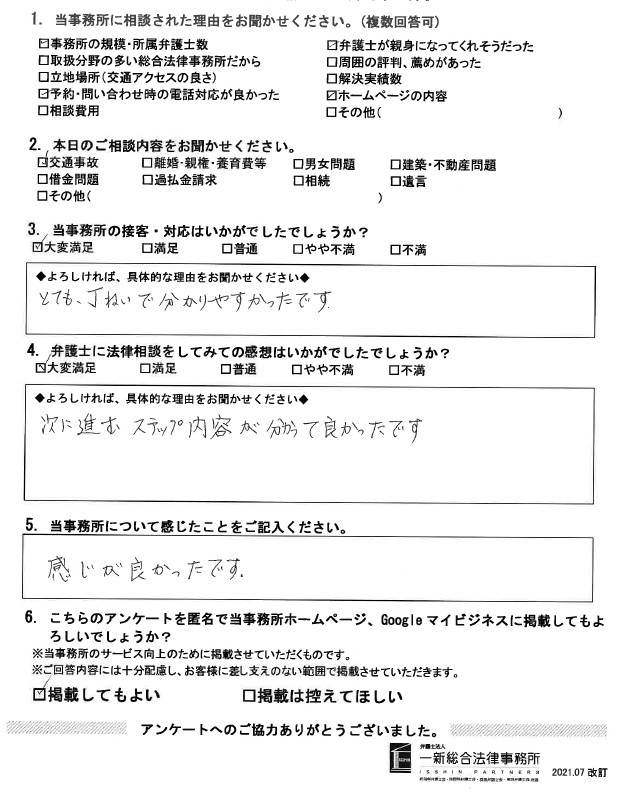 1. 当事務所に相談された理由をお聞かせください。(複数回答可)
☑事務所の規模・所属弁護士数 ☑弁護士が親身になってくれそうだった
□取扱分野の多い総合法律事務所だから □周囲の評判、薦めがあった
□立地場所(交通アクセスの良さ) □解決実績数
☑予約・問い合わせ時の電話対応が良かった ☑ホームページの内容
□相談費用 □その他( )
2. 本日のご相談内容をお聞かせください。
☑交通事故 □離婚・親権・養育費等 □男女問題 □建築・不動産問題
□借金問題 □過払金請求 □相続 □遺言
□その他( )
3. 当事務所の接客・対応はいかがでしたでしょうか?
☑大変満足 □満足 □普通 □やや不満 □不満
◆よろしければ、具体的な理由をお聞かせください◆
とても、丁ねいで分かりやすかったです。
4. 弁護士に法律相談をしてみての感想はいかがでしたでしょうか?
☑大変満足 □満足 □普通 □やや不満 □不満
◆よろしければ、具体的な理由をお聞かせください◆
次に進む ステップ内容が分かって良かったです
5. 当事務所について感じたことをご記入ください。
感じが良かったです。
6. こちらのアンケートを匿名で当事務所ホームページ、Google マイビジネスに掲載してもよ
ろしいでしょうか?
※当事務所のサービス向上のために掲載させていただくものです。
※ご回答内容には十分配慮し、お客様に差し支えのない範囲で掲載させていただきます。
☑掲載してもよい □掲載は控えてほしい
アンケートへのご協力ありがとうございました。
弁護士法人
一新総合法律事務所
ISSHIN PARTNERS
2021.07 改訂